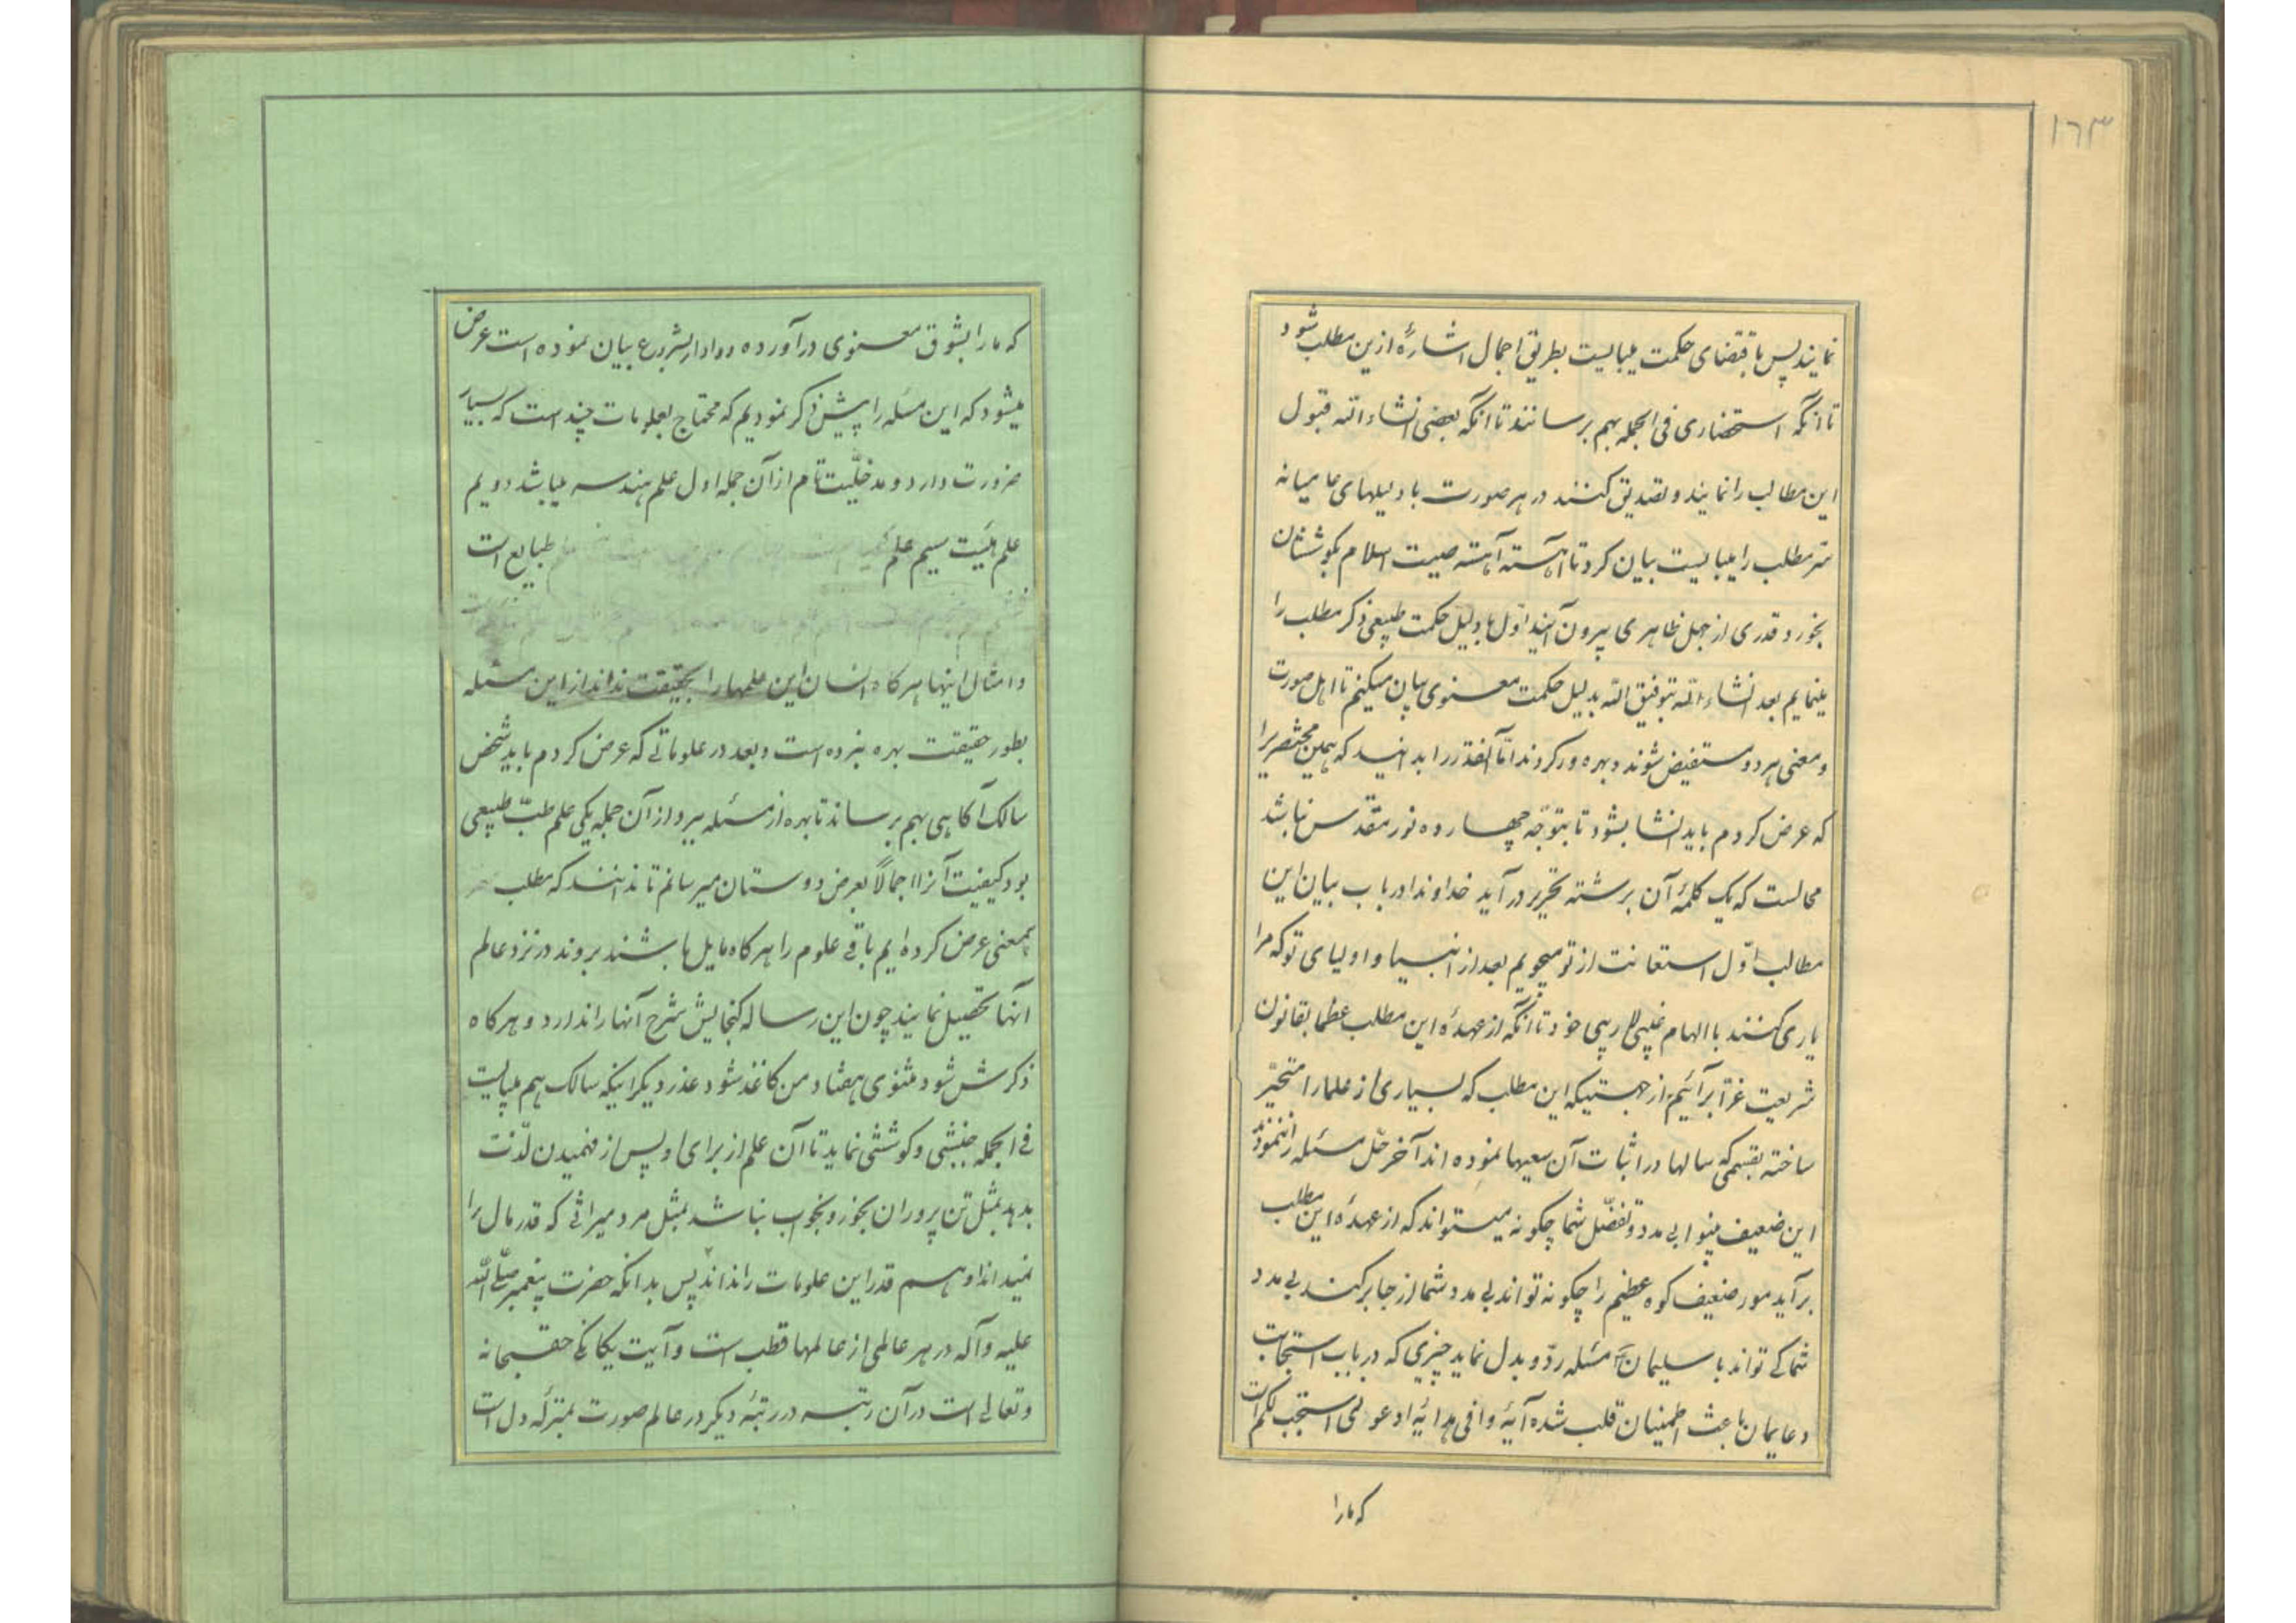 ۱۶۳
نمایند پس باقتضای حکمت میبایست بطریق اجمال اشارهٔ ازین مطلب شود
تا آنکه استحضاری فی الجمله بهم برسانند تا آنکه بعضی انشاءالله قبول
این مطالب را نمایند و تصدیق کنند در هر صورت با دلیلهای عامیانه
سرّ مطلب را میبایست بیان کرد تا آهسته آهسته صیت اسلام بگوششان
بخورد و قدری از جهل ظاهری بیرون آیند اوّل بادلیل حکمت طبیعی ذکر مطلب را
مینمایم بعد انشاءالله بتوفیق الله بدلیل حکمت معنوی بیان میکنم تا اهل صورت
و معنی هر دو مستفیض شوند و بهره ور کردند امّا آنقدر را بدانید که همین مختصریرا
که عرض کردم باید انشا بشود تا بتوجّه چهارده نور مقدّس نباشد
محالست که یک کلمهٔ آن برشته تحریر درآید خداوندا در باب بیان این
مطالب اوّل استعانت از تو میجویم بعد از انبیا و اولیای تو که مرا
یاری کنند با الهام غیبی لاریبی خود تا آنکه از عهدهٔ این مطلب عظما بقانون
شریعت غرّا برآئیم از جهتیکه این مطلب که بسیاری از علما را متحیّر
ساخته بقسمی که سالها در اثبات آن سعیها نموده اند آخر حلّ مسئله را ننمودند
این ضعیف بینوا بی مدد و تفضّل شما چکونه میتواند که از عهدهٔ این مطلب
برآید مور ضعیف کوه عظیم را چکونه تواند بی مدد شما از جا برکند بی مدد
شما کی تواند با سلیمان مسئله ردّ و بدل نماید چیزی که در باب استجابت
دعایمان باعث اطمینان قلب شده آیهٔ وافی هدایهٔ ادعونی استجب لکم است
که ما را
که ما را بشوق معنوی درآورده و وادار بشروع بیان نموده است عرض
میشود که این مسئله را پیش ذکر نمودیم که محتاج بعلومات چند است که بسیار
ضرورت دارد و مدخلیّت تام از آن جمله اول علم هندسه میباشد دویم
علم هیئت سیم علم طبایع است
و امثال اینها هر کاه انسان این علمها را بحقیقت نداند از این مسئله
بطور حقیقت بهره نبرده است و بعد در علوماتی که عرض کردم باید شخص
سالک آکاهی بهم برساند تا بهره از مسئله ببرد از آن جمله یکی علم طبّ طبیعی
بود کیفیت آنرا اجمالاً بعرض دوستان میرسانم تا ندانند که مطلب
بیمعنی عرض کرده ایم باقی علوم را هر کاه مایل باشند بروند در نزد عالم
آنها تحصیل نمایند چون این رساله کنجایش شرح آنها را ندارد و هر کاه
ذکرش شود مثنوی هفتاد من کاغذ شود عذر دیکر اینکه سالک هم میبایست
فی الجمله جنبشی و کوششی نماید تا آن علم از برای او پس از فهمیدن لذّت
بدهد بمثل تن پروران بخور و بخواب نباشد بمثل مرد میراثی که قدر مال را
نمیداند او هم قدر این علومات را نداند پس بدانکه حضرت پیغمبر صلّی الله
علیه و آله در هر عالمی از عالمها قطب است و آیت یکانکی حق سبحانه
و تعالی است در آن رتبه در رتبهٔ دیکر در عالم صورت بمنزلهٔ دل است